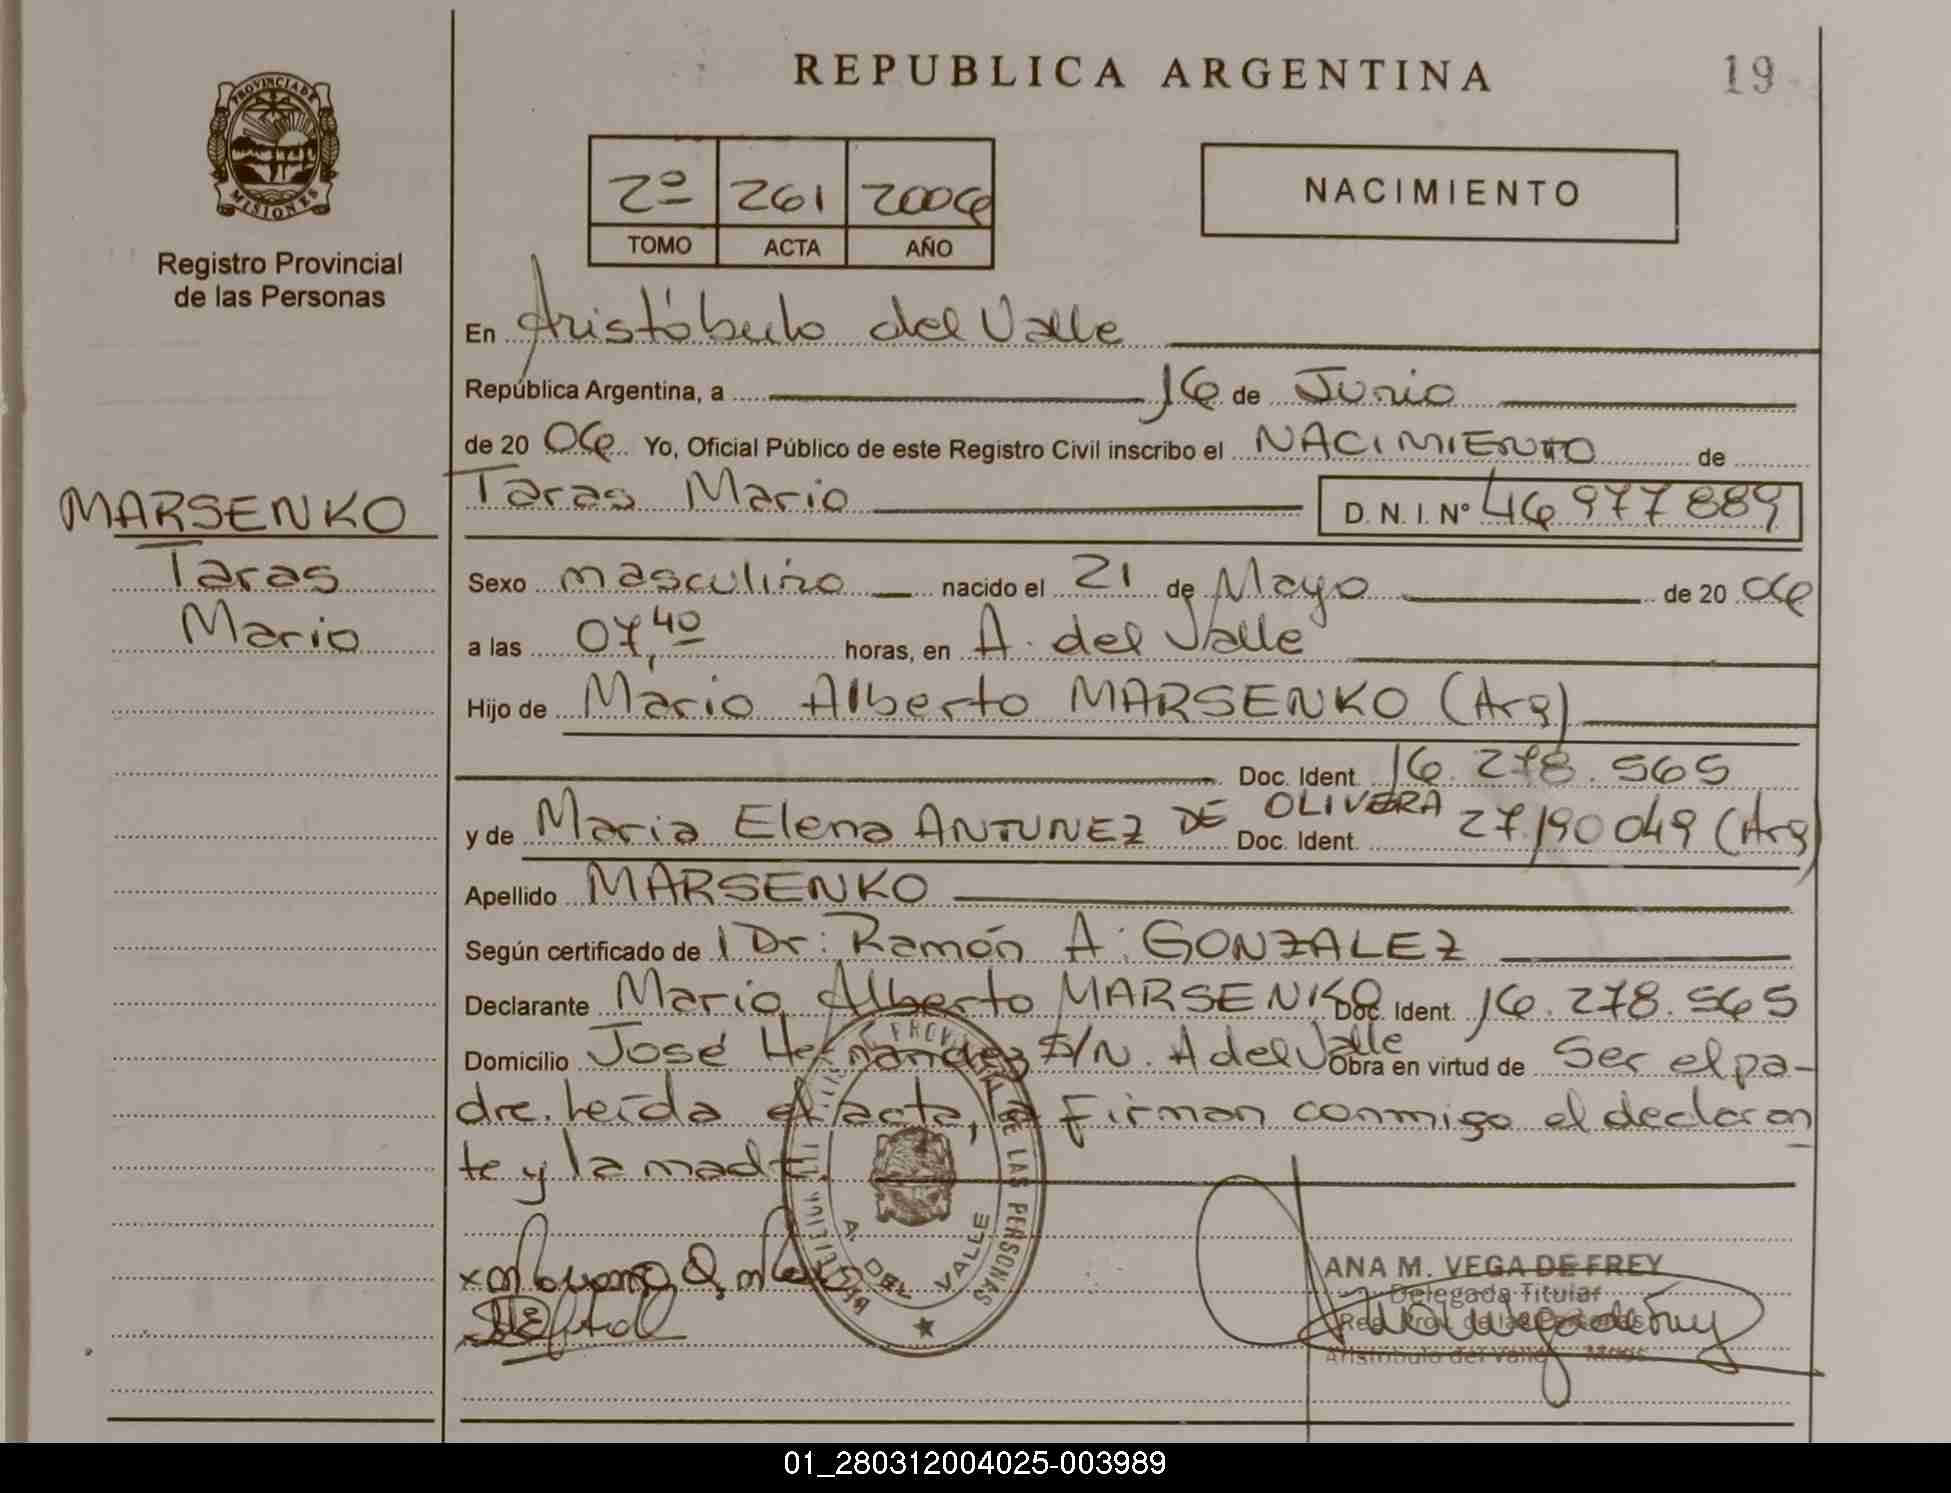 REPUBLICA ARGENTINA
19
PROVINCIA DE
MISIONES
Registro Provincial
de las Personas
2º 261 2006
TOMO ACTA AÑO
NACIMIENTO
En Aristóbulo del Valle
República Argentina, a 16 de Junio
de 20 06 Yo, Oficial Público de este Registro Civil inscribo el NACIMIENTO de
MARSENKO
Taras
Mario
Taras Mario D. N. I. Nº 46977889
Sexo masculino nacido el 21 de Mayo de 20 06
a las 07,40 horas, en A. del Valle
Hijo de Mario Alberto MARSENKO (Arg)
Doc. Ident. 16.278.565
y de Maria Elena ANTUNEZ DE OLIVERA Doc. Ident. 27.190049 (Arg)
Apellido MARSENKO
Según certificado de 1 Dr: Ramón A. GONZALEZ
Declarante Mario Alberto MARSENKO Doc. Ident. 16.278.565
Domicilio José Hernandez S/N. A del Valle Obra en virtud de Ser el pa-
dre. Leída el acta, la firman conmigo el declaran
te y la madre.
DE LAS PERSONAS
A. DEL VALLE
ANA M. VEGA DE FREY
Delegada Titular
Reg. Prov. de las Personas
Aristóbulo del Valle - Mnes.
01_280312004025-003989